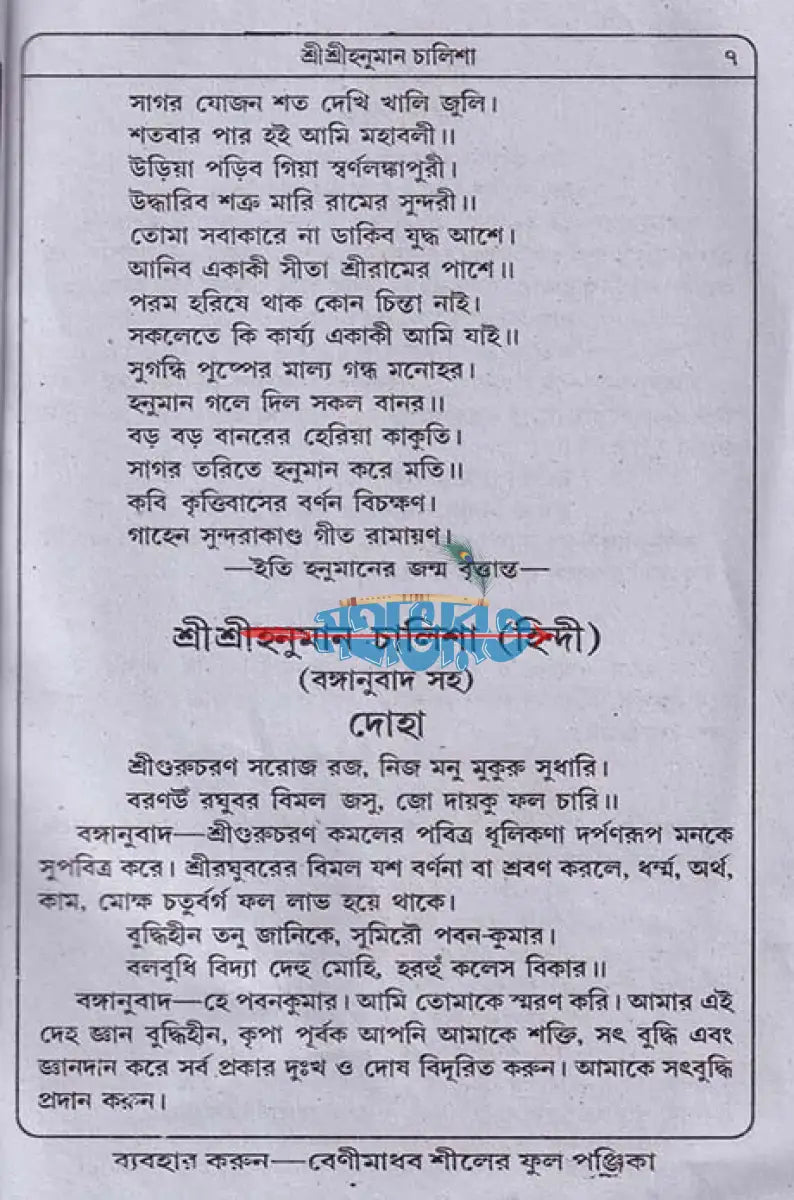 শ্রীশ্রীহনুমান চালিশা ৭
সাগর যোজন শত দেখি খালি জুলি।
শতবার পার হই আমি মহাবলী॥
উড়িয়া পড়িব গিয়া স্বর্ণলঙ্কাপুরী।
উদ্ধারিব শত্রু মারি রামের সুন্দরী॥
তোমা সবাকারে না ডাকিব যুদ্ধ আশে।
আনিব একাকী সীতা শ্রীরামের পাশে॥
পরম হরিষে থাক কোন চিন্তা নাই।
সকলেতে কি কার্য্য একাকী আমি যাই॥
সুগন্ধি পুষ্পের মাল্য গন্ধ মনোহর।
হনুমান গলে দিল সকল বানর॥
বড় বড় বানরের হেরিয়া কাকুতি।
সাগর তরিতে হনুমান করে মতি॥
কবি কৃত্তিবাসের বর্ণন বিচক্ষণ।
গাহেন সুন্দরাকাণ্ড গীত রামায়ণ।
—ইতি হনুমানের জন্ম বৃত্তান্ত—
শ্রীশ্রীহনুমান চালিশা (হিন্দী)
(বঙ্গানুবাদ সহ)
দোহা
শ্রীগুরুচরণ সরোজ রজ, নিজ মনু মুকুরু সুধারি।
বরণউঁ রঘুবর বিমল জসু, জো দায়কু ফল চারি॥
বঙ্গানুবাদ—শ্রীগুরুচরণ কমলের পবিত্র ধূলিকণা দর্পণরূপ মনকে
সুপবিত্র করে। শ্রীরঘুবরের বিমল যশ বর্ণনা বা শ্রবণ করলে, ধর্ম্ম, অর্থ,
কাম, মোক্ষ চতুর্বর্গ ফল লাভ হয়ে থাকে।
বুদ্ধিহীন তনু জানিকে, সুমিরৌ পবন-কুমার।
বলবুধি বিদ্যা দেহু মোহি, হরহুঁ কলেস বিকার॥
বঙ্গানুবাদ—হে পবনকুমার। আমি তোমাকে স্মরণ করি। আমার এই
দেহ জ্ঞান বুদ্ধিহীন, কৃপা পূর্বক আপনি আমাকে শক্তি, সৎ বুদ্ধি এবং
জ্ঞানদান করে সর্ব প্রকার দুঃখ ও দোষ বিদূরিত করুন। আমাকে সৎবুদ্ধি
প্রদান করুন।
ব্যবহার করুন—বেণীমাধব শীলের ফুল পঞ্জিকা